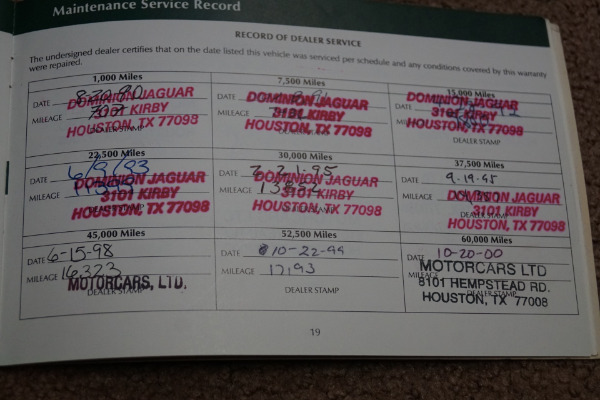 Maintenance Service Record
RECORD OF DEALER SERVICE
The undersigned dealer certifies that on the date listed this vehicle was serviced per schedule and any conditions covered by this warranty
were repaired.
1,000 Miles
DATE 8-30-90
MILEAGE
DOMINION JAGUAR
3101 KIRBY
HOUSTON, TX 77098
DEALER STAMP
7,500 Miles
DATE
MILEAGE
DOMINION JAGUAR
3101 KIRBY
HOUSTON, TX 77098
15,000 Miles
DATE
MILEAGE
DOMINION JAGUAR
3101 KIRBY
HOUSTON, TX 77098
DEALER STAMP
22,500 Miles
DATE 6/9/93
MILEAGE
DOMINION JAGUAR
3101 KIRBY
HOUSTON, TX 77098
DEALER STAMP
30,000 Miles
DATE 3-21-95
MILEAGE
DOMINION JAGUAR
3101 KIRBY
HOUSTON, TX 77098
DEALER STAMP
37,500 Miles
DATE 9-19-95
MILEAGE
DOMINION JAGUAR
3101 KIRBY
HOUSTON, TX 77098
45,000 Miles
DATE 6-15-98
MILEAGE 16323
MOTORCARS, LTD.
DEALER STAMP
52,500 Miles
DATE 10-22-99
MILEAGE 17,193
DEALER STAMP
60,000 Miles
DATE 10-20-00
MILEAGE
MOTORCARS LTD
8101 HEMPSTEAD RD.
HOUSTON, TX 77008
DEALER STAMP
19